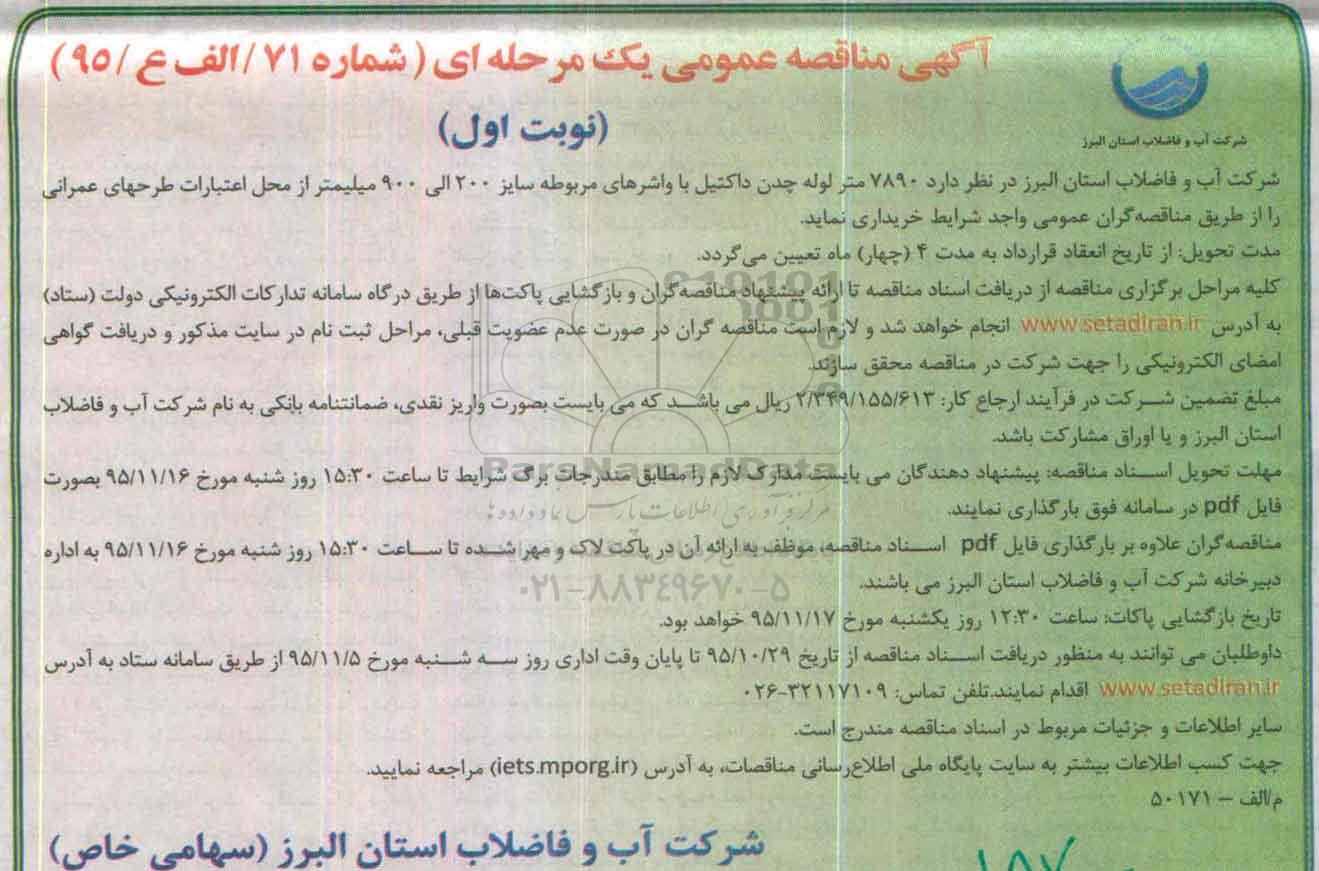 آگهی مناقصه عمومی یک مرحله ای (شماره ۷۱/الف ع/۹۵)
(نوبت اول)
شرکت آب و فاضلاب استان البرز
شرکت آب و فاضلاب استان البرز در نظر دارد ۷۸۹۰ متر لوله چدن داکتیل با واشرهای مربوطه سایز ۲۰۰ الی ۹۰۰ میلیمتر از محل اعتبارات طرحهای عمرانی
را از طریق مناقصه‌گران عمومی واجد شرایط خریداری نماید.
مدت تحویل: از تاریخ انعقاد قرارداد به مدت ۴ (چهار) ماه تعیین می‌گردد.
کلیه مراحل برگزاری مناقصه از دریافت اسناد مناقصه تا ارائه پیشنهاد مناقصه‌گران و بازگشایی پاکت‌ها از طریق درگاه سامانه تدارکات الکترونیکی دولت (ستاد)
به آدرس www.setadiran.ir انجام خواهد شد و لازم است مناقصه گران در صورت عدم عضویت قبلی، مراحل ثبت نام در سایت مذکور و دریافت گواهی
امضای الکترونیکی را جهت شرکت در مناقصه محقق سازند.
مبلغ تضمین شرکت در فرآیند ارجاع کار: ۲/۳۴۹/۱۵۵/۶۱۳ ریال می باشد که می بایست بصورت واریز نقدی، ضمانتنامه بانکی به نام شرکت آب و فاضلاب
استان البرز و یا اوراق مشارکت باشد.
مهلت تحویل اسناد مناقصه: پیشنهاد دهندگان می بایست مدارک لازم را مطابق مندرجات برگ شرایط تا ساعت ۱۵:۳۰ روز شنبه مورخ ۹۵/۱۱/۱۶ بصورت
فایل pdf در سامانه فوق بارگذاری نمایند.
مناقصه‌گران علاوه بر بارگذاری فایل pdf اسناد مناقصه، موظف به ارائه آن در پاکت لاک و مهر شده تا ساعت ۱۵:۳۰ روز شنبه مورخ ۹۵/۱۱/۱۶ به اداره
دبیرخانه شرکت آب و فاضلاب استان البرز می باشند.
تاریخ بازگشایی پاکات: ساعت ۱۲:۳۰ روز یکشنبه مورخ ۹۵/۱۱/۱۷ خواهد بود.
داوطلبان می توانند به منظور دریافت اسناد مناقصه از تاریخ ۹۵/۱۰/۲۹ تا پایان وقت اداری روز سه شنبه مورخ ۹۵/۱۱/۵ از طریق سامانه ستاد به آدرس
www.setadiran.ir اقدام نمایند.تلفن تماس: ۳۲۱۱۷۱۰۹-۰۲۶
سایر اطلاعات و جزئیات مربوط در اسناد مناقصه مندرج است.
جهت کسب اطلاعات بیشتر به سایت پایگاه ملی اطلاع‌رسانی مناقصات، به آدرس (iets.mporg.ir) مراجعه نمایید.
م/الف – ۵۰۱۷۱
شرکت آب و فاضلاب استان البرز (سهامی خاص)
ParaNamadData
مرکز فرآوری اطلاعات پارس نماد داده ها
۰۲۱-۸۸۳۴۹۶۷۰-۵